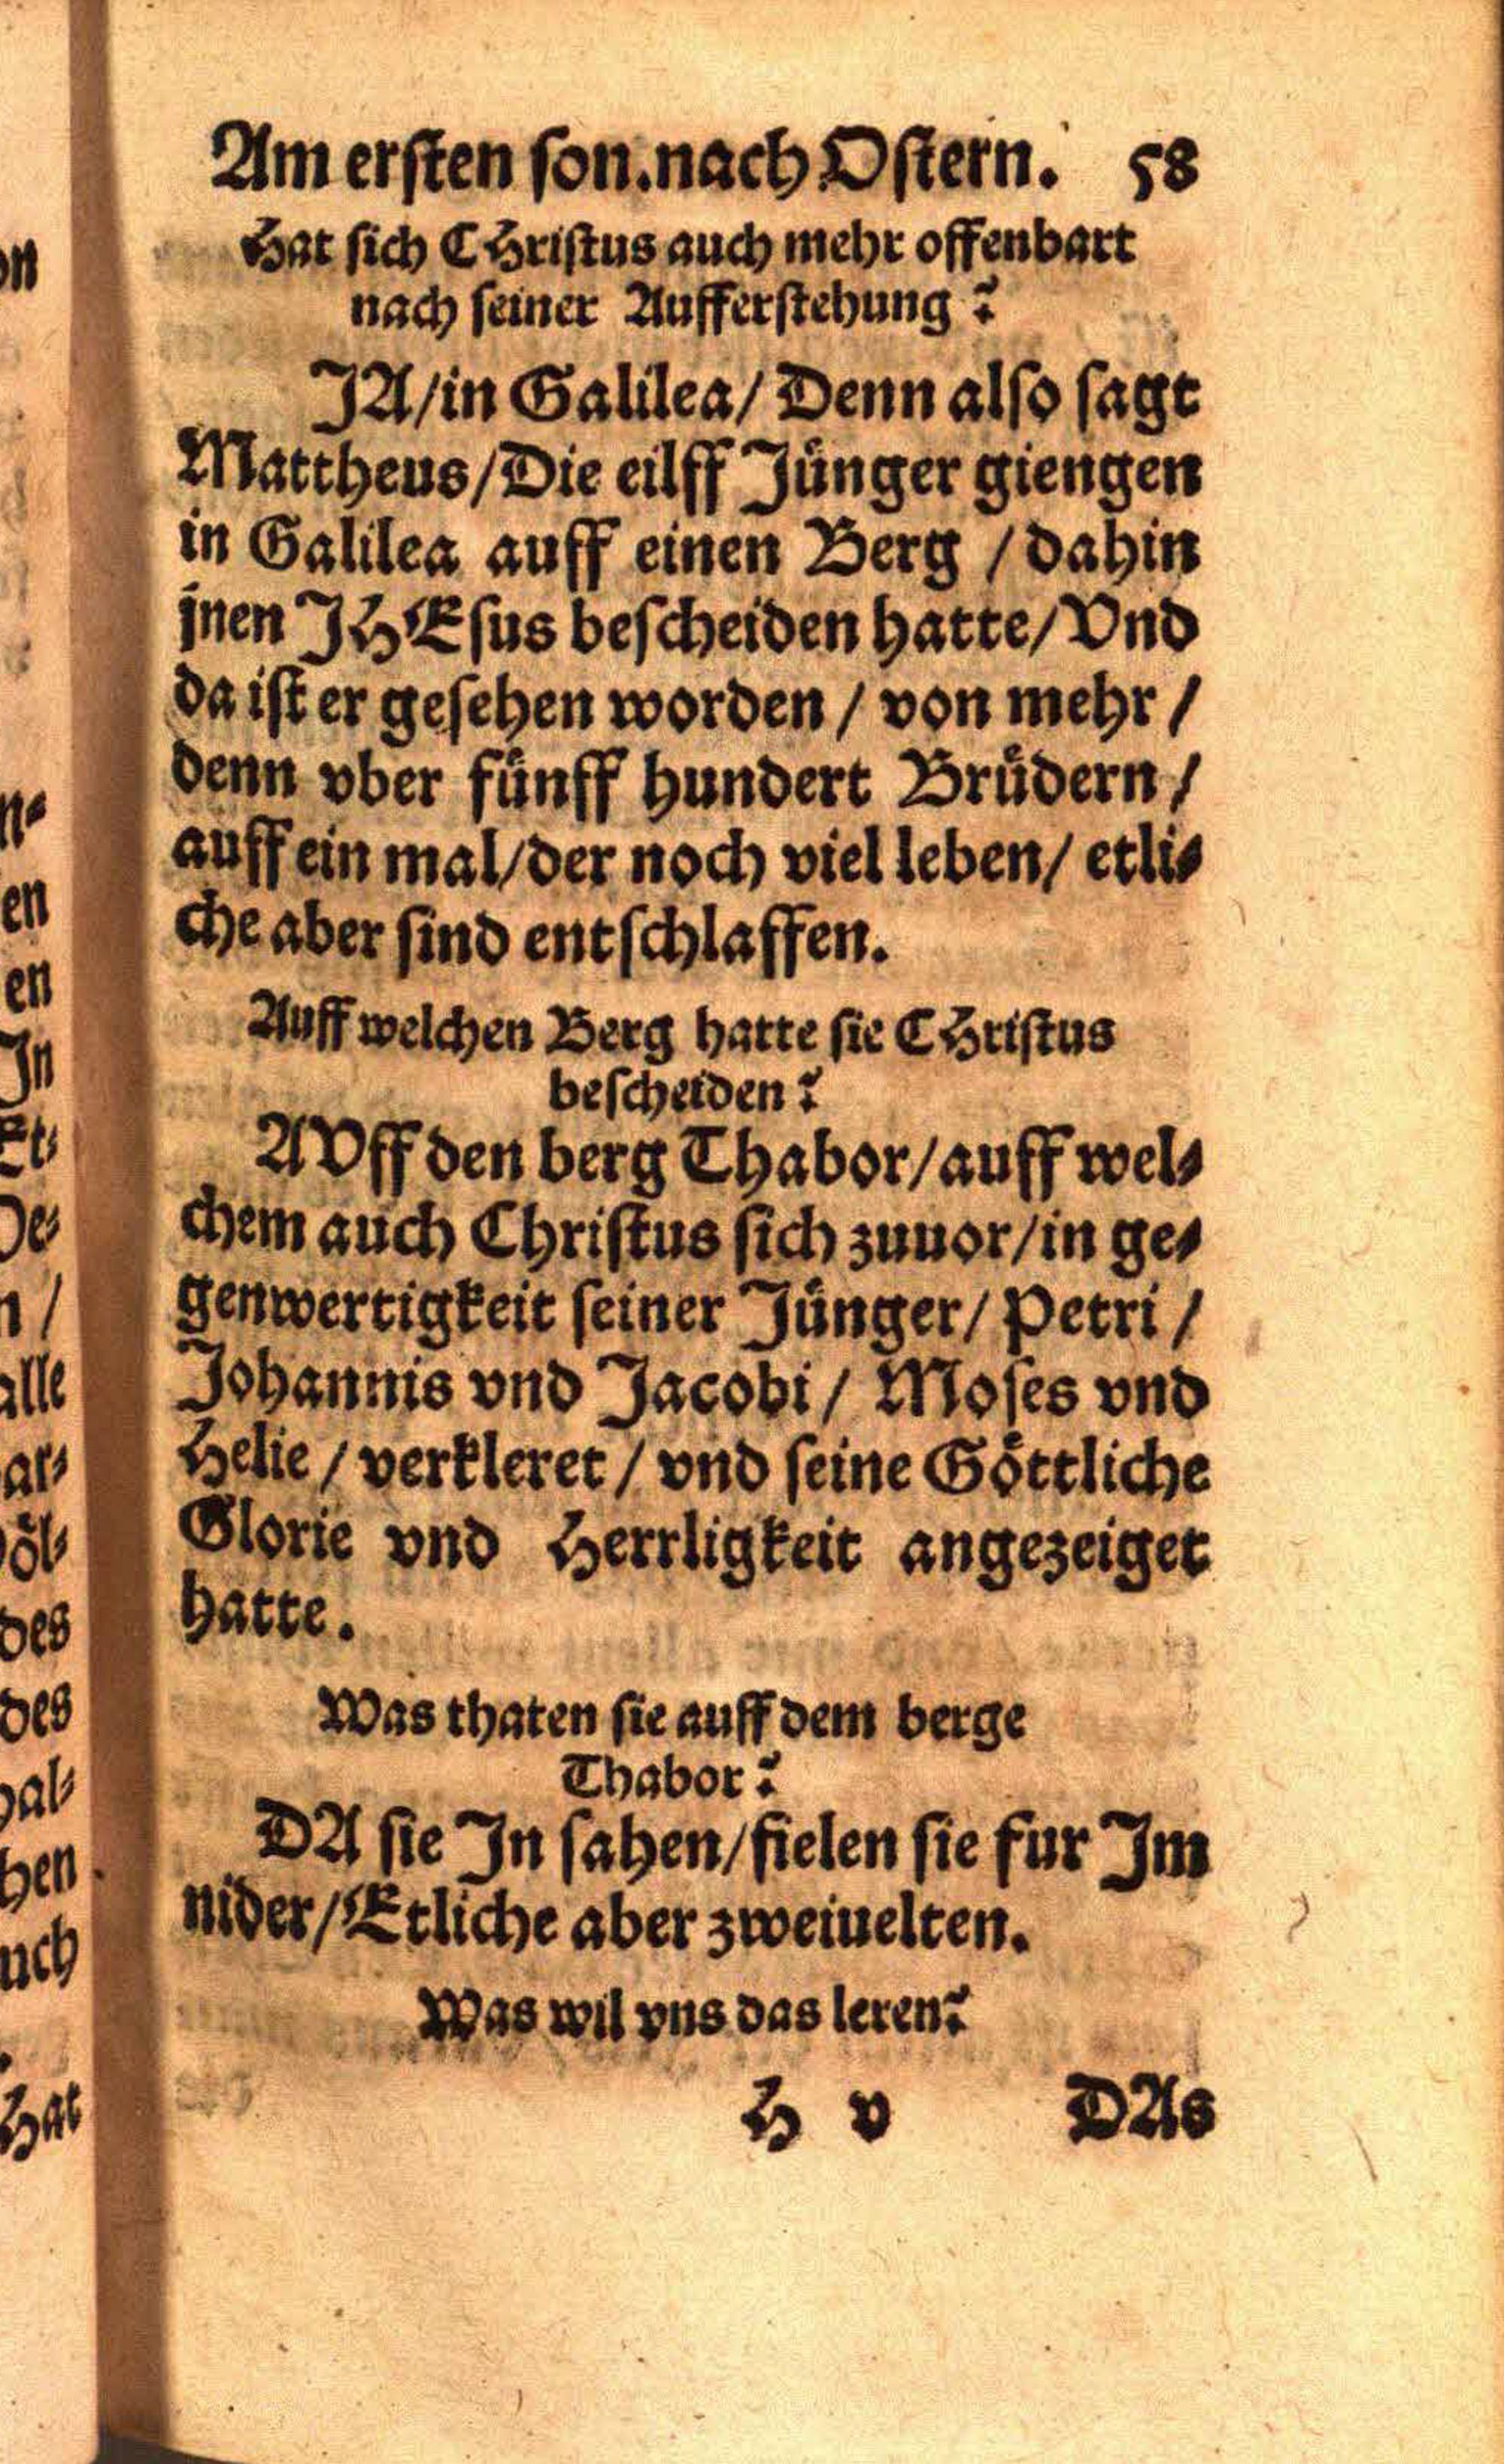 Am ersten son. nach Ostern. 58
Hat sich CHristus auch mehr offenbart
nach seiner Aufferstehung?
JA/in Galilea/ Denn also sagt
Mattheus/Die eilff Jünger giengen
in Galilea auff einen Berg / dahin
jnen JHEsus bescheiden hatte/Vnd
da ist er gesehen worden / von mehr /
denn vber fünff hundert Brüdern /
auff ein mal/der noch viel leben/ etli-
che aber sind entschlaffen.
Auff welchen Berg hatte sie CHristus
bescheiden?
AVff den berg Thabor/auff wel-
chem auch Christus sich zuuor/in ge-
genwertigkeit seiner Jünger/ Petri /
Johannis vnd Jacobi / Moses vnd
Helie / verkleret / vnd seine Göttliche
Glorie vnd Herrligkeit angezeiget
hatte.
Was thaten sie auff dem berge
Thabor?
DA sie Jn sahen/fielen sie fur Jm
nider/Etliche aber zweiuelten.
Was wil vns das leren?
H v DAs